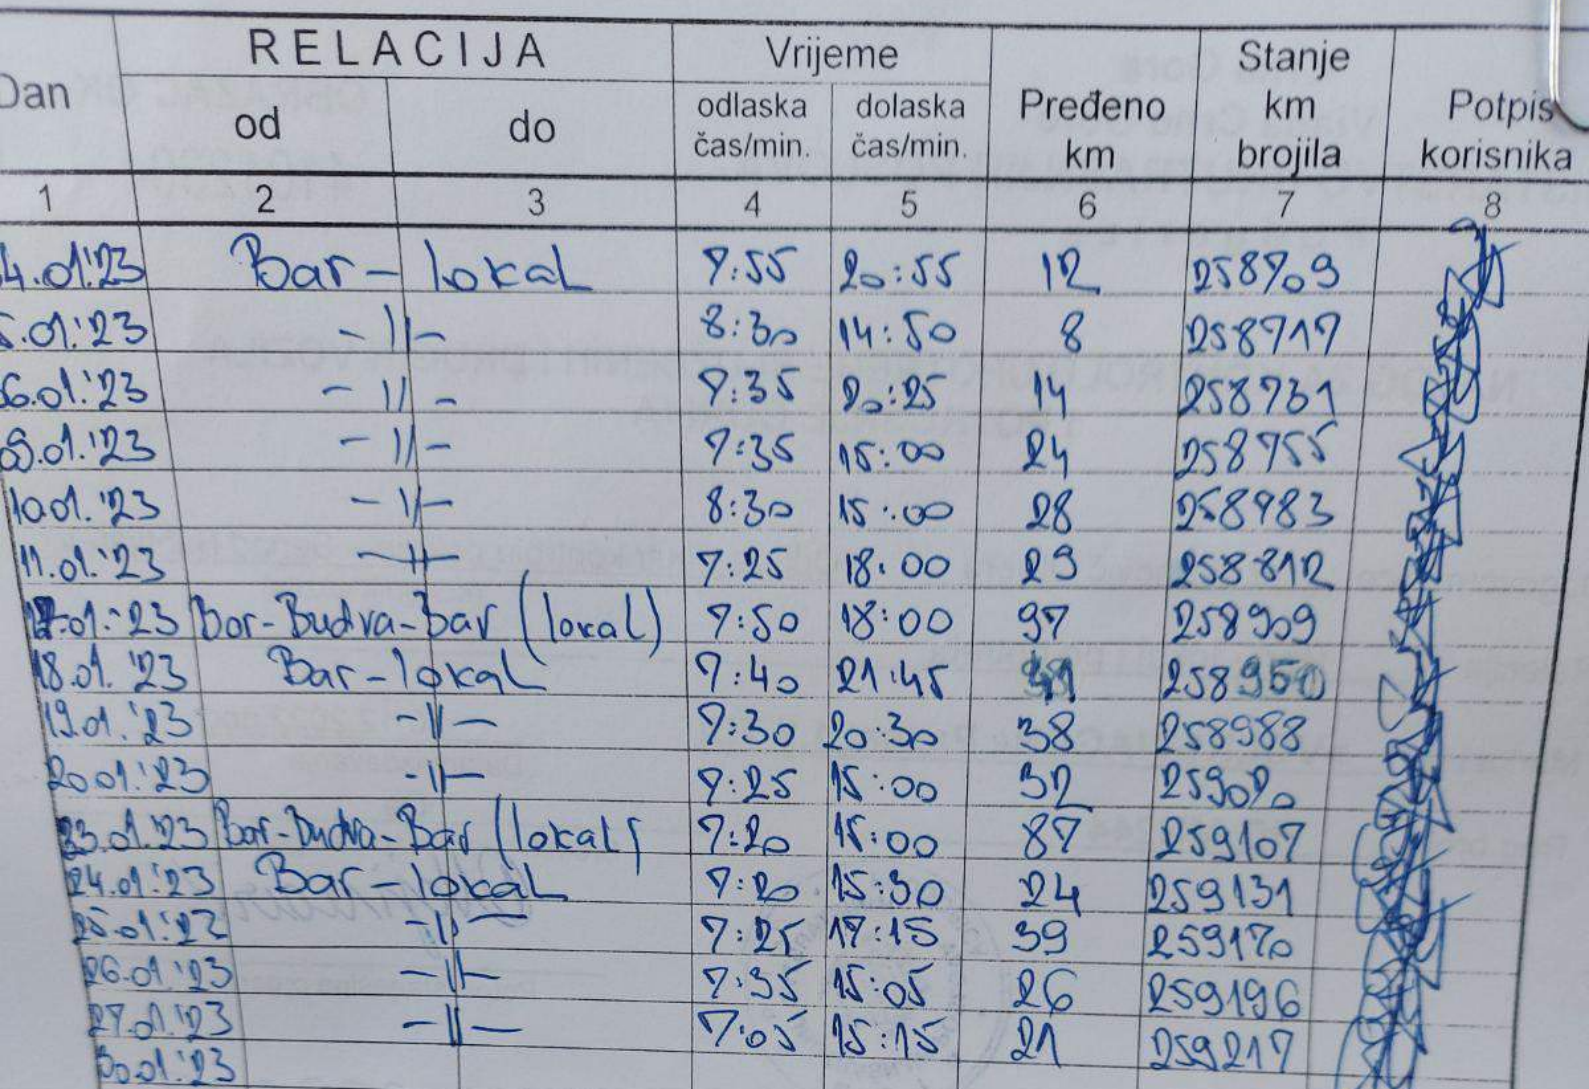 Dan RELACIJA Vrijeme Pređeno km Stanje km brojila Potpis korisnika
od do odlaska čas/min. dolaska čas/min.
1 2 3 4 5 6 7 8
4.01.'23 Bar - lokal 7:55 20:55 12 258709
5.01.'23 -||- 8:30 14:50 8 258717
6.01.'23 -||- 7:35 20:25 14 258731
09.01.'23 -||- 7:35 15:00 24 258755
10.01.'23 -||- 8:30 15:00 28 258783
11.01.'23 -||- 7:25 18:00 29 258812
.01.'23 Bar-Budva-Bar (lokal) 7:50 18:00 97 258909
18.01.'23 Bar-lokal 7:40 21:45 41 258950
19.01.'23 -||- 7:30 20:30 38 258988
20.01.'23 -||- 7:25 15:00 32 259020
23.01.'23 Bar-Budva-Bar (lokal) 7:20 15:00 87 259107
24.01.'23 Bar-lokal 7:20 15:30 24 259131
25.01.'23 -||- 7:25 17:15 39 259170
26.01.'23 -||- 7:35 15:05 26 259196
27.01.'23 -||- 7:05 15:15 21 259217
30.01.'23